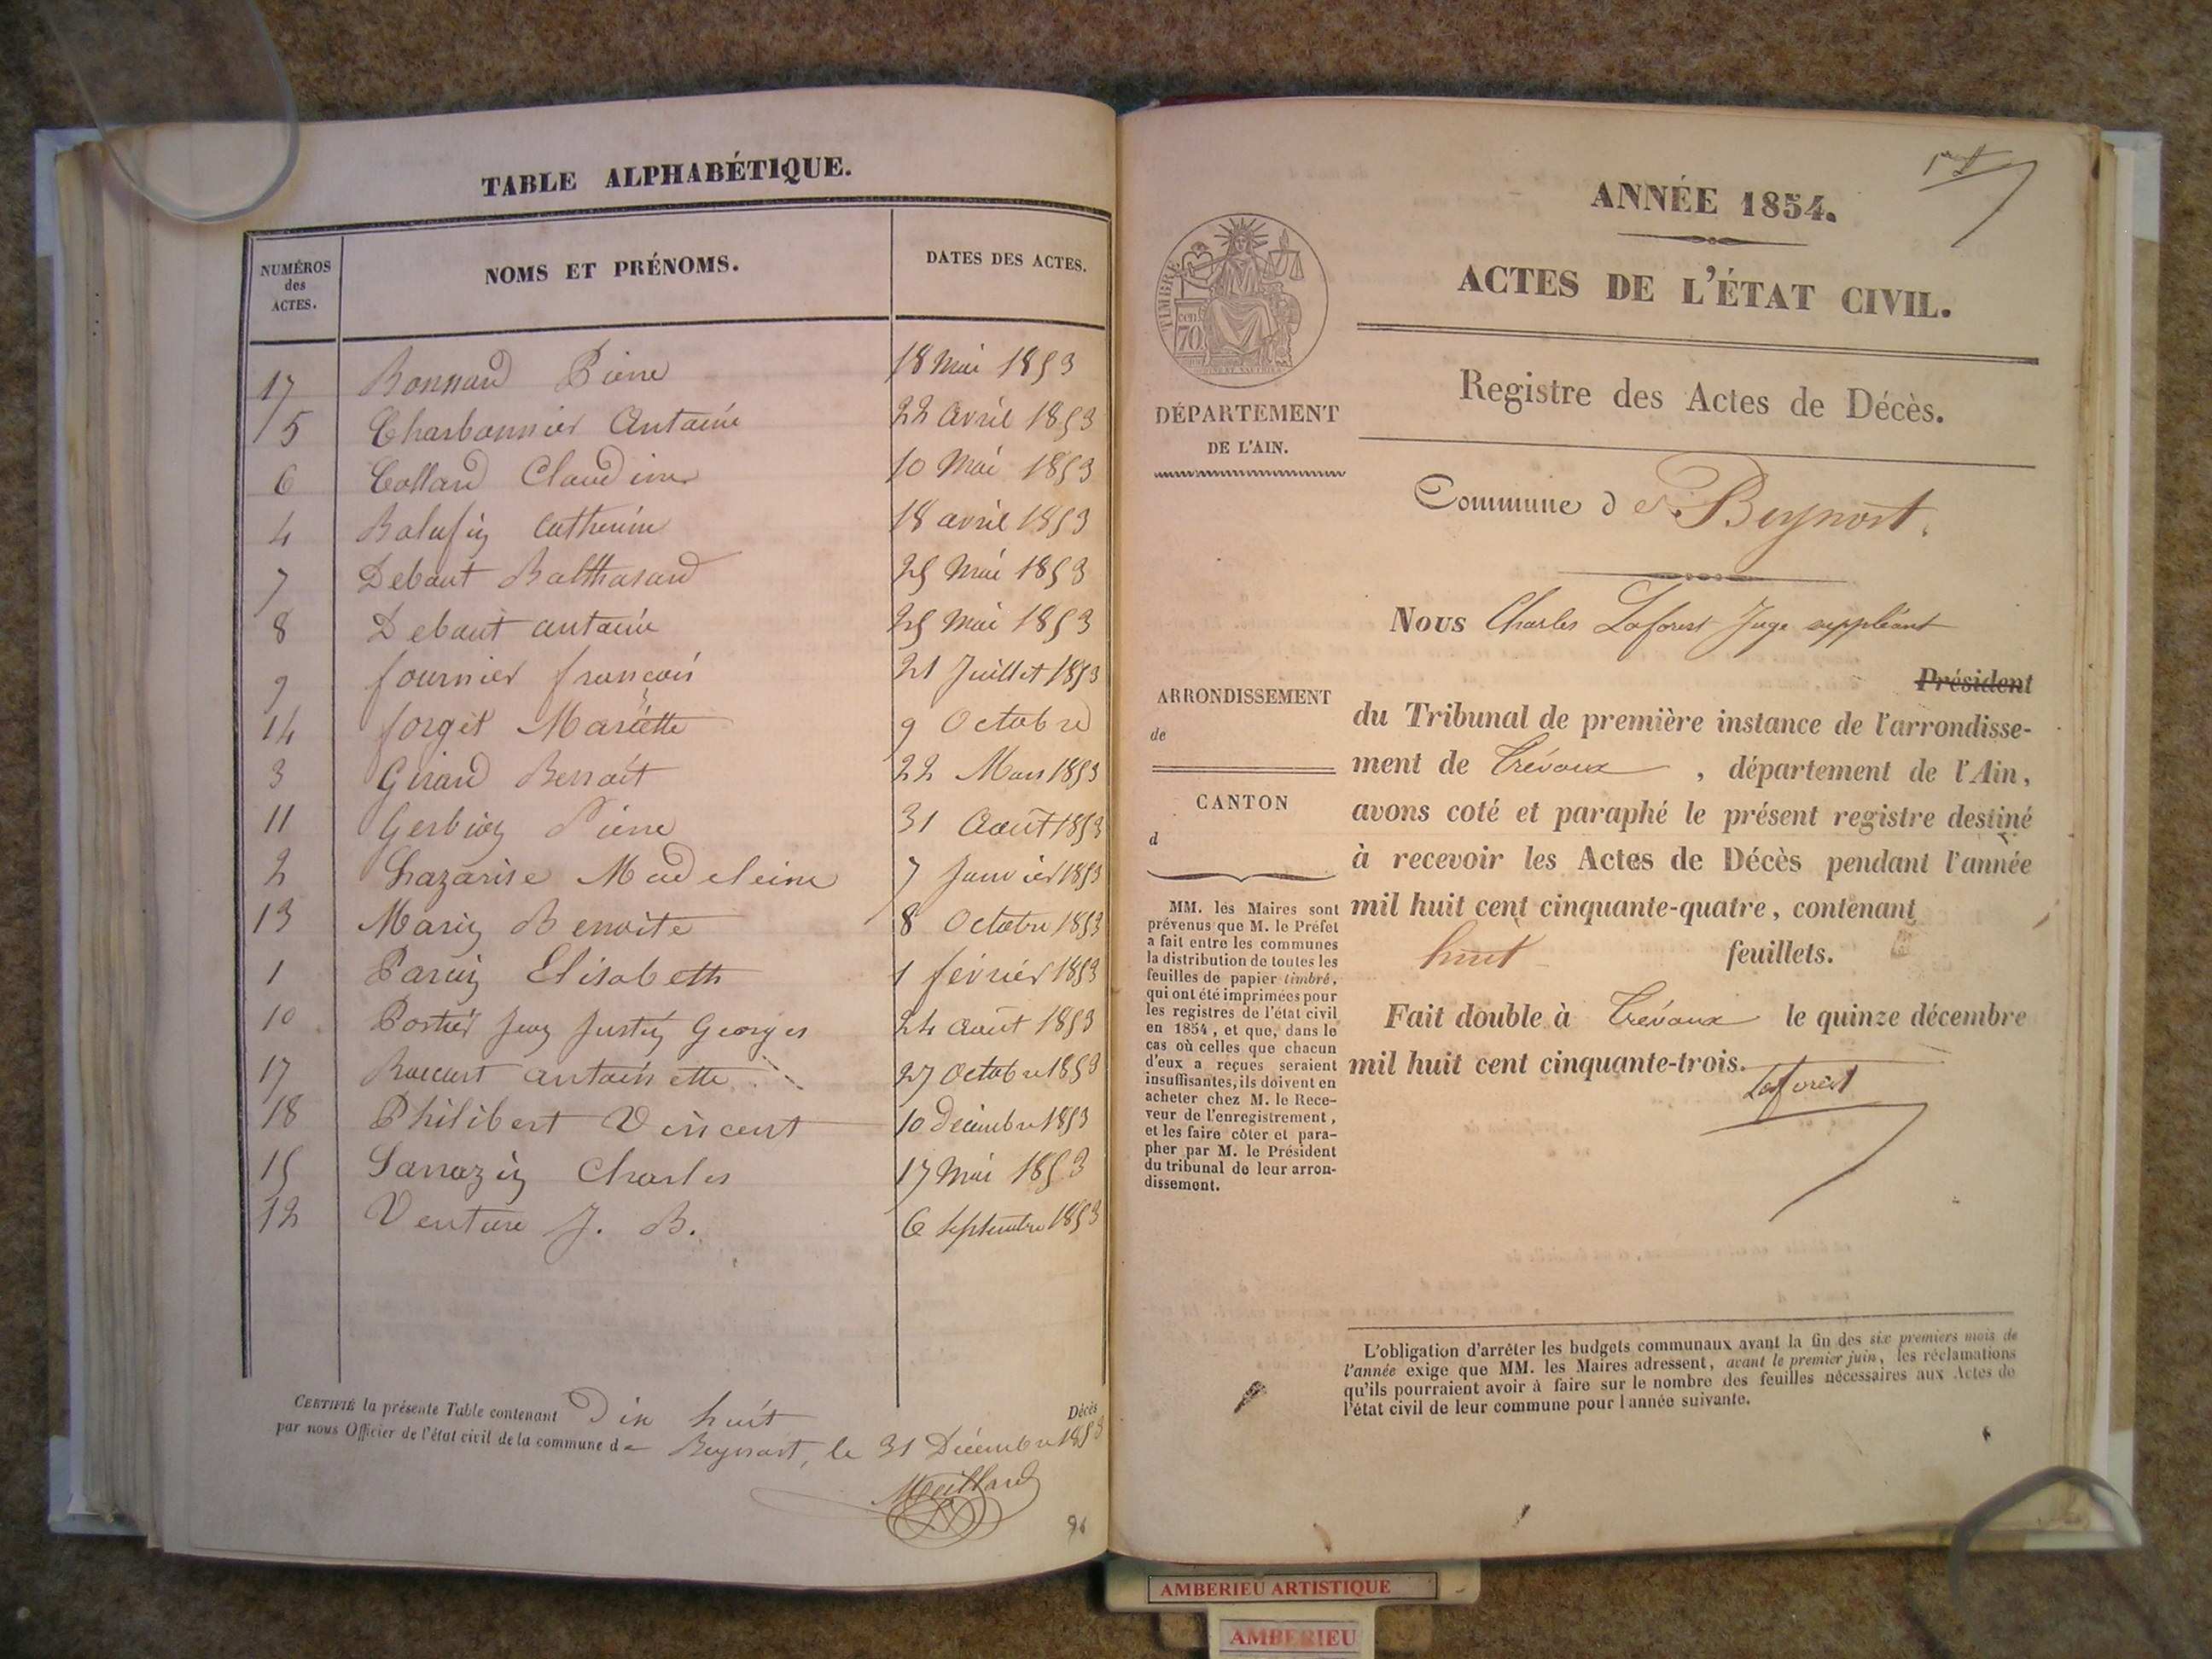 TABLE ALPHABÉTIQUE.
NUMÉROS
des
ACTES.
NOMS ET PRÉNOMS.
DATES DES ACTES.
17 Bonnard Pierre 18 Mai 1853
5 Charbonnier Antoine 22 avril 1853
6 Collard Claudine 10 Mai 1853
4 Catherine 18 avril 1853
7 Debaut Balthasard 25 Mai 1853
8 Debaut antoine 25 Mai 1853
9 fournier françois 21 Juillet 1853
14 forget Mariette 9 Octobre
3 Girard Benoit 22 Mars 1853
11 Pierre 31 Août 1853
2 Lazarise Madeleine 7 Janvier 1853
13 Marin Benoite 8 Octobre 1853
1 Elisabeth 1 février 1853
10 Portier Jean Justin Georges 24 août 1853
17 antoinette 27 Octobre 1853
18 Philibert Vincent 10 Décembre 1853
15 Sarrazin Charles 17 Mai 1853
12 Venture J. B. 6 Septembre 1853
CERTIFIÉ la présente Table contenant Dix huit Décès
par nous Officier de l'état civil de la commune de Beynost, le 31 Décembre 1853
Meillard
96
1er
ANNÉE 1854.
ACTES DE L'ÉTAT CIVIL.
TIMBRE
70
cent
DÉPARTEMENT
DE L'AIN.
Registre des Actes de Décès.
Commune de Beynost.
Nous Charles Laforest Juge suppléant
Président
du Tribunal de première instance de l'arrondisse-
ment de Trévoux , département de l'Ain,
avons coté et paraphé le présent registre destiné
à recevoir les Actes de Décès pendant l'année
mil huit cent cinquante-quatre, contenant
huit feuillets.
Fait double à Trévoux le quinze décembre
mil huit cent cinquante-trois.
Laforest
ARRONDISSEMENT
de
CANTON
d
MM. les Maires sont
prévenus que M. le Préfet
a fait entre les communes
la distribution de toutes les
feuilles de papier timbré,
qui ont été imprimées pour
les registres de l'état civil
en 1854, et que, dans le
cas où celles que chacun
d'eux a reçues seraient
insuffisantes, ils doivent en
acheter chez M. le Rece-
veur de l'enregistrement,
et les faire côter et para-
pher par M. le Président
du tribunal de leur arron-
dissement.
L'obligation d'arrêter les budgets communaux avant la fin des six premiers mois de
l'année exige que MM. les Maires adressent, avant le premier juin, les réclamations
qu'ils pourraient avoir à faire sur le nombre des feuilles nécessaires aux Actes de
l'état civil de leur commune pour l'année suivante.
AMBERIEU ARTISTIQUE
AMBERIEU